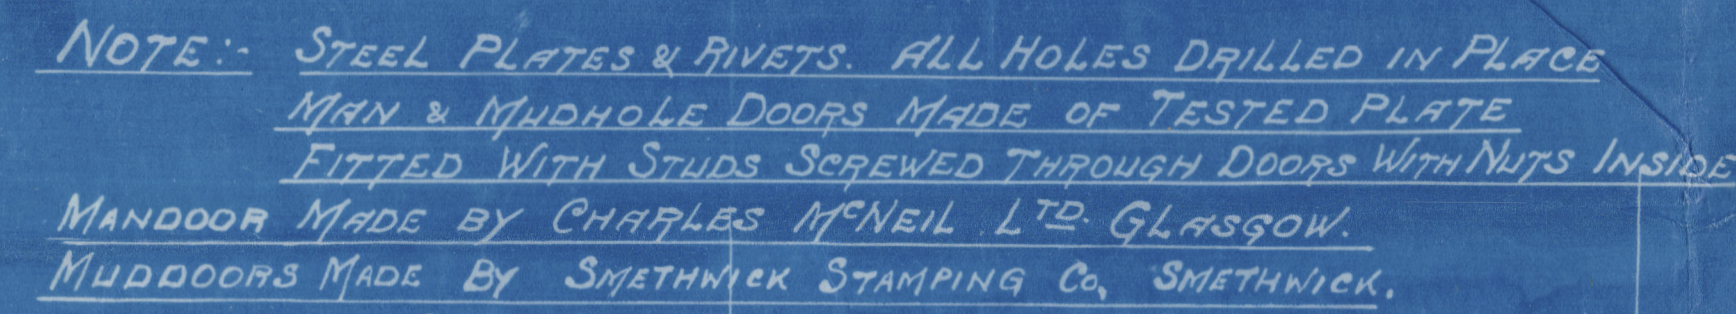 NOTE:- STEEL PLATES & RIVETS. ALL HOLES DRILLED IN PLACE
MAN & MUDHOLE DOORS MADE OF TESTED PLATE
FITTED WITH STUDS SCREWED THROUGH DOORS WITH NUTS INSIDE
MANDOOR MADE BY CHARLES McNEIL LTD. GLASGOW.
MUDDOORS MADE BY SMETHWICK STAMPING Co, SMETHWICK.